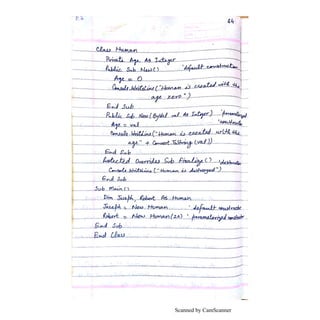 44
Class Human
Private Age As Integer
Public Sub New() 'default constructor
Age = 0
Console.WriteLine("Human is created with the
age zero.")
End Sub
Public Sub New(ByVal val As Integer) 'parameterized
'constructor
Age = val
Console.WriteLine("Human is created with the
age." + Convert.ToString(val))
End Sub
Protected Overrides Sub Finalize() 'destructor
Console.WriteLine("Human is destroyed")
End Sub
Sub Main()
Dim Joseph, Robert As Human
Joseph = New Human 'default constructor
Robert = New Human(20) 'parameterized constructor
End Sub
End Class
Scanned by CamScanner